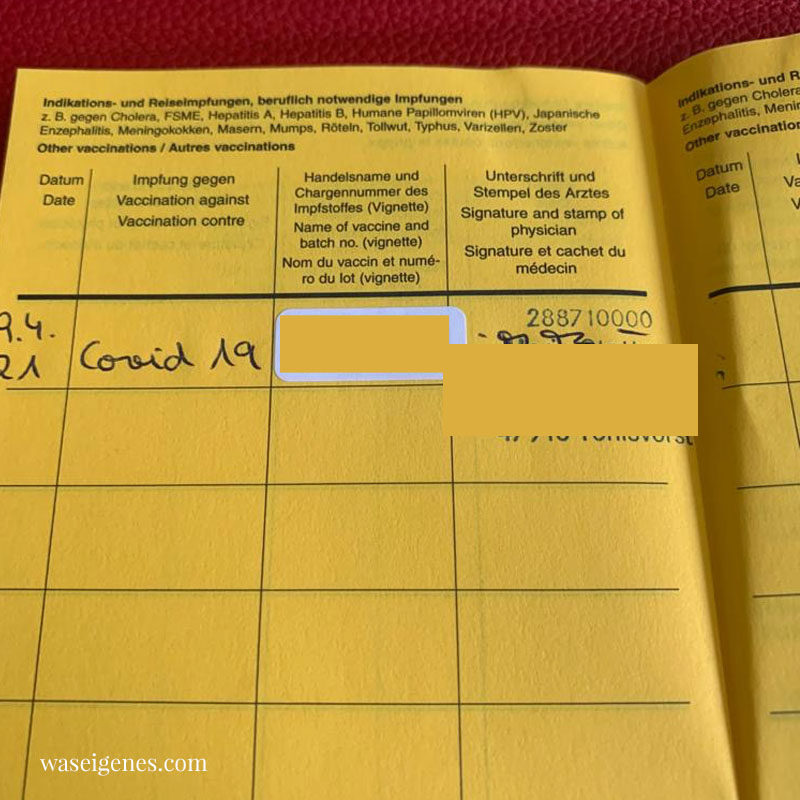 Indikations- und Reiseimpfungen, beruflich notwendige Impfungen
z. B. gegen Cholera, FSME, Hepatitis A, Hepatitis B, Humane Papillomviren (HPV), Japanische
Enzephalitis, Meningokokken, Masern, Mumps, Röteln, Tollwut, Typhus, Varizellen, Zoster
Other vaccinations / Autres vaccinations
Datum
Date
Impfung gegen
Vaccination against
Vaccination contre
Handelsname und
Chargennummer des
Impfstoffes (Vignette)
Name of vaccine and
batch no. (vignette)
Nom du vaccin et numé-
ro du lot (vignette)
Unterschrift und
Stempel des Arztes
Signature and stamp of
physician
Signature et cachet du
médecin
9.4.
21
Covid 19
288710000
Indikations- und
z. B. gegen Cholera
Enzephalitis,
Other
Datum
Date
waseigenes.com